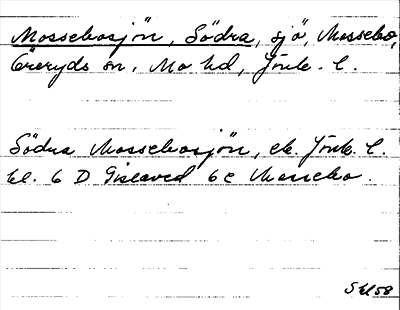 Mossebosjön, Södra, sjö, Mossebo,
Öreryds sn, Mo hd, Jönk. l.
Södra Mossebosjön, ek. Jönk. l.
bl. 6 D Gislaved 6c Mossebo.